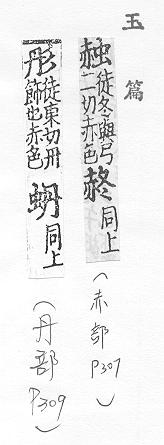 玉篇
赨
徒冬與弓
二切赤色
同上
（赤部 P307）
彤
徒東切丹
飾也赤色
蚒
同上
（丹部 P309）